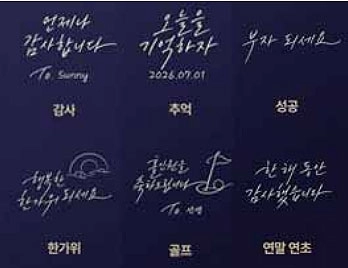 언제나
감사합니다
To. Sunny
감사
오늘을
기억하자
2026.07.01
추억
부자 되세요
성공
행복한
한가위 되세요
한가위
홀인원을
축하드립니다
To.
골프
한 해 동안
감사했습니다
연말 연초